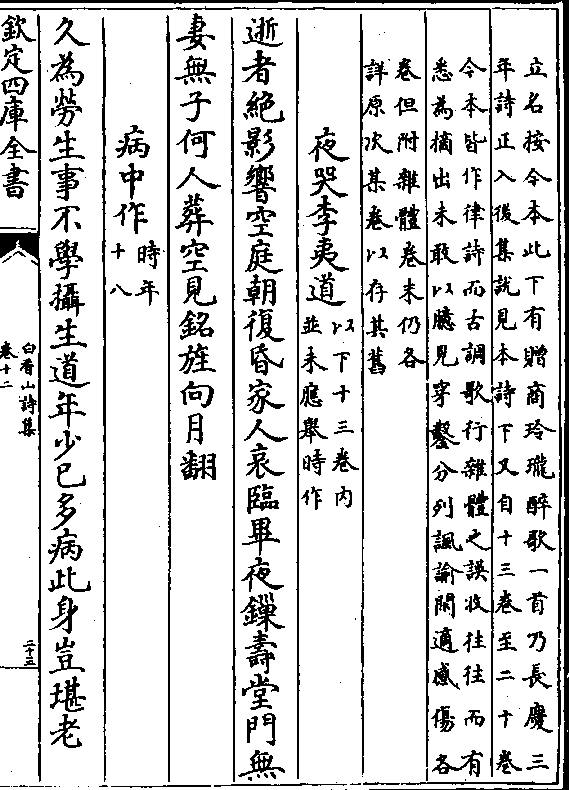 立名按今本此下有贈商玲瓏醉歌一首乃長慶三
年詩正入後集說見本詩下又自十三卷至二十卷
今本皆作律詩而古調歌行雜體之誤收往往而有
悉為摘出未敢以臆見穿鑿分列諷諭閒適感傷各
卷但附雜體卷末仍各
詳原次某卷以存其舊
夜哭李夷道
以下十三卷內
並未應舉時作
逝者絕影響空庭朝復昏家人哀臨畢夜鏁壽堂門無
妻無子何人葬空見銘旌向月翻
病中作
時年
十八
久為勞生事不學攝生道年少已多病此身豈堪老
欽定四庫全書
白香山詩集
卷十二
二十五